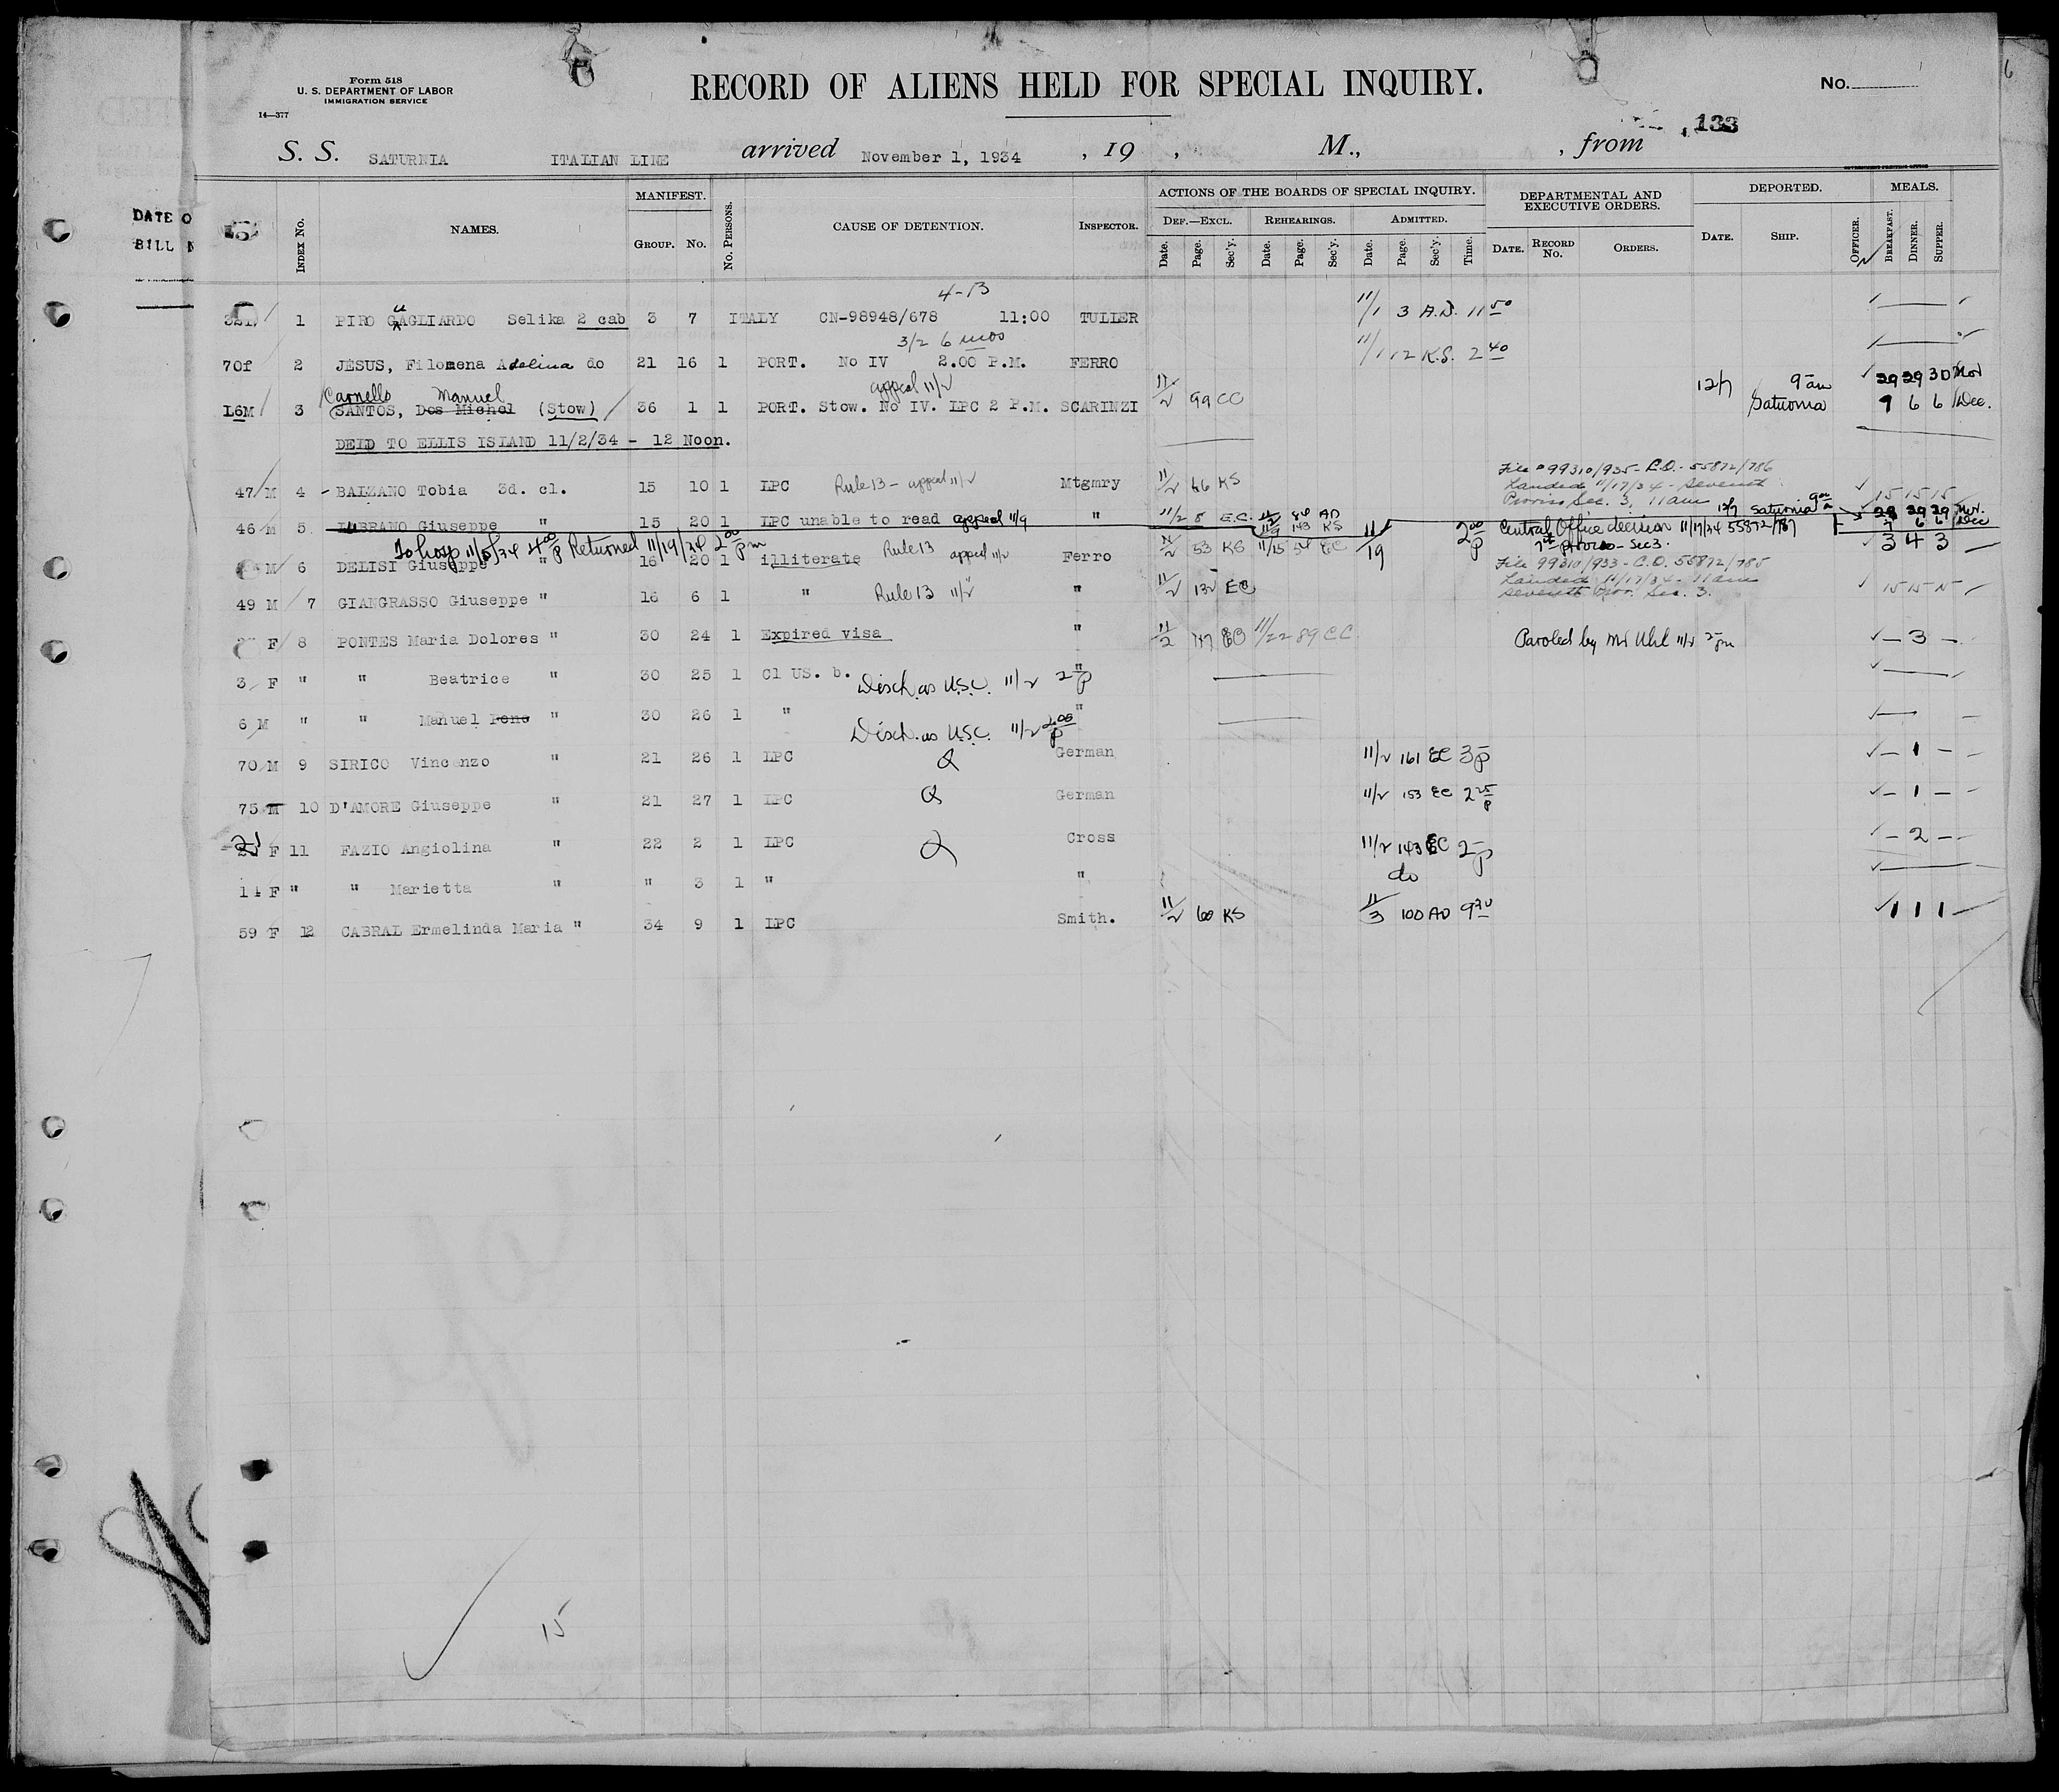 Form 518
U. S. DEPARTMENT OF LABOR
IMMIGRATION SERVICE
14—377
RECORD OF ALIENS HELD FOR SPECIAL INQUIRY.
No.
133
6
S. S. SATURNIA ITALIAN LINE arrived November 1, 1934 , 19 , M., , from
DATE O
BILL
INDEX No.
NAMES.
MANIFEST.
GROUP. No.
No. PERSONS.
CAUSE OF DETENTION.
INSPECTOR.
ACTIONS OF THE BOARDS OF SPECIAL INQUIRY.
DEF.—EXCL. REHEARINGS. ADMITTED.
Date. Page. Sec'y. Date. Page. Sec'y. Date. Page. Sec'y. Time.
DEPARTMENTAL AND EXECUTIVE ORDERS.
DATE. RECORD No. ORDERS.
DEPORTED.
DATE. SHIP.
OFFICER.
MEALS.
BREAKFAST. DINNER. SUPPER.
4-B
1 PIRO GAGLIARDO Selika 2 cab 3 7 ITALY CN-98948/678 11:00 TULLER 11/1 3 A.D. 11 50
3/2 6 mos
70f 2 JESUS, Filomena Adelina do 21 16 1 PORT. No IV 2.00 P.M. FERRO 11/1 12 K.S. 2 40
Manuel appeal 11/2 9 am 29 29 30 Nov
16M 3 SANTOS, Dos Michel (Stow) 36 1 1 PORT. Stow. No IV. LPC 2 P.M. SCARINZI 11/2 99 CC 12/7 Saturnia 9 6 6 Dec.
DEID TO ELLIS ISLAND 11/2/34 - 12 Noon.
File #99310/935 - C.O. - 55872/786
47 M 4 BALZANO Tobia 3d. cl. 15 10 1 LPC Rule 13 - appeal 11/2 Mtgmry 11/2 46 KS Landed 11/17/34 - Seventh
Proviso Sec. 3. 11am 15 15 15
46 M 5 LUBRANO Giuseppe " 15 20 1 LPC unable to read appeal 11/9 " 11/2 8 E.C. 143 KS Saturnia 29 29 Nov.
To hosp 11/5/34 4 00 P Returned 11/19/34 2 00 pm Central Office decision 11/17/34 55872/787
M 6 DELISI Giuseppe " 16 20 1 illiterate Rule 13 appeal 11/2 Ferro 11/2 53 KS 11/15 54 EC 11/19 2 00 P 7th proviso - Sec 3. 3 4 3
File 99310/933 - C.O. 55872/785
49 M 7 GIANGRASSO Giuseppe " 16 6 1 " Rule 13 11/2 " 11/2 132 EC Landed 11/17/34 - 11am
Seventh Prov. Sec. 3. 15 15 15
F 8 PONTES Maria Dolores " 30 24 1 Expired visa " 11/2 147 EC 11/22 89 CC Paroled by Mr Uhl 11/2 2 pm - 3 -
3 F " " Beatrice " 30 25 1 Cl US. b. Disch. as U.S.C. 11/2 2 P "
6 M " " Manuel Pono " 30 26 1 " Disch. as U.S.C. 11/2 2 00 P "
70 M 9 SIRICO Vincenzo " 21 26 1 LPC German 11/2 161 EC 3 P - 1 -
75 M 10 D'AMORE Giuseppe " 21 27 1 LPC German 11/2 153 EC 2 25 P - 1 -
21 F 11 FAZIO Angiolina " 22 2 1 LPC Cross 11/2 143 EC 2 P - 2 -
14 F " " Marietta " " 3 1 " " do
59 F 12 CABRAL Ermelinda Maria " 34 9 1 LPC Smith. 11/2 60 KS 11/3 100 AD 9 30 1 1 1
15